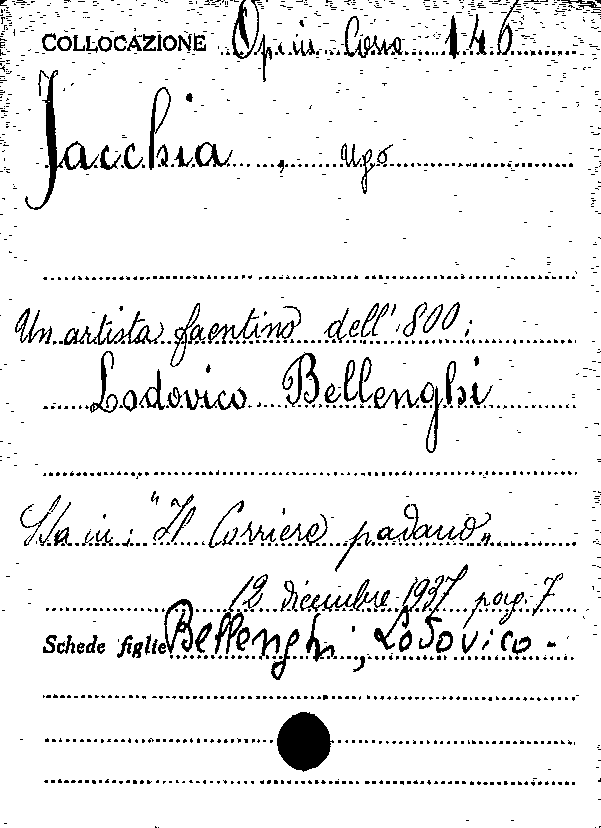 COLLOCAZIONE Op. in Corso 146
Jacchia, Ugo
Un artista faentino dell'800:
Lodovico Bellenghi
Sta in: "Il Corriere padano"
12 dicembre 1937 pag. 7
Schede figlie Bellenghi, Lodovico -